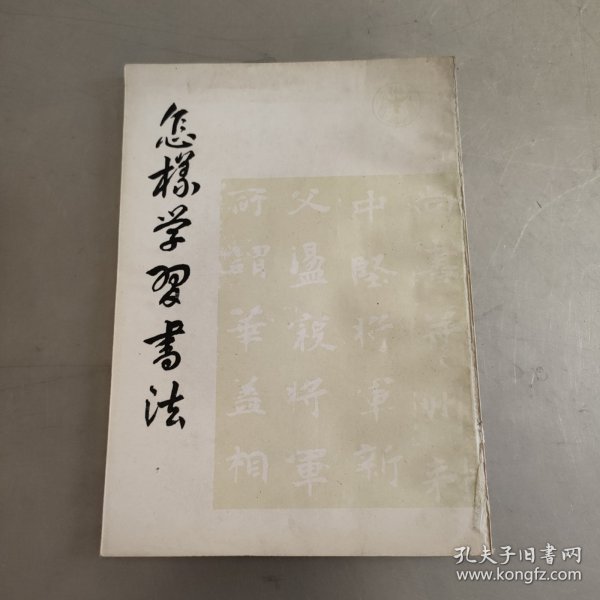 怎樣学習書法
中堅将軍新
父溫親将軍
所謂華蓋相
孔夫子旧書网
www.kongfz.com